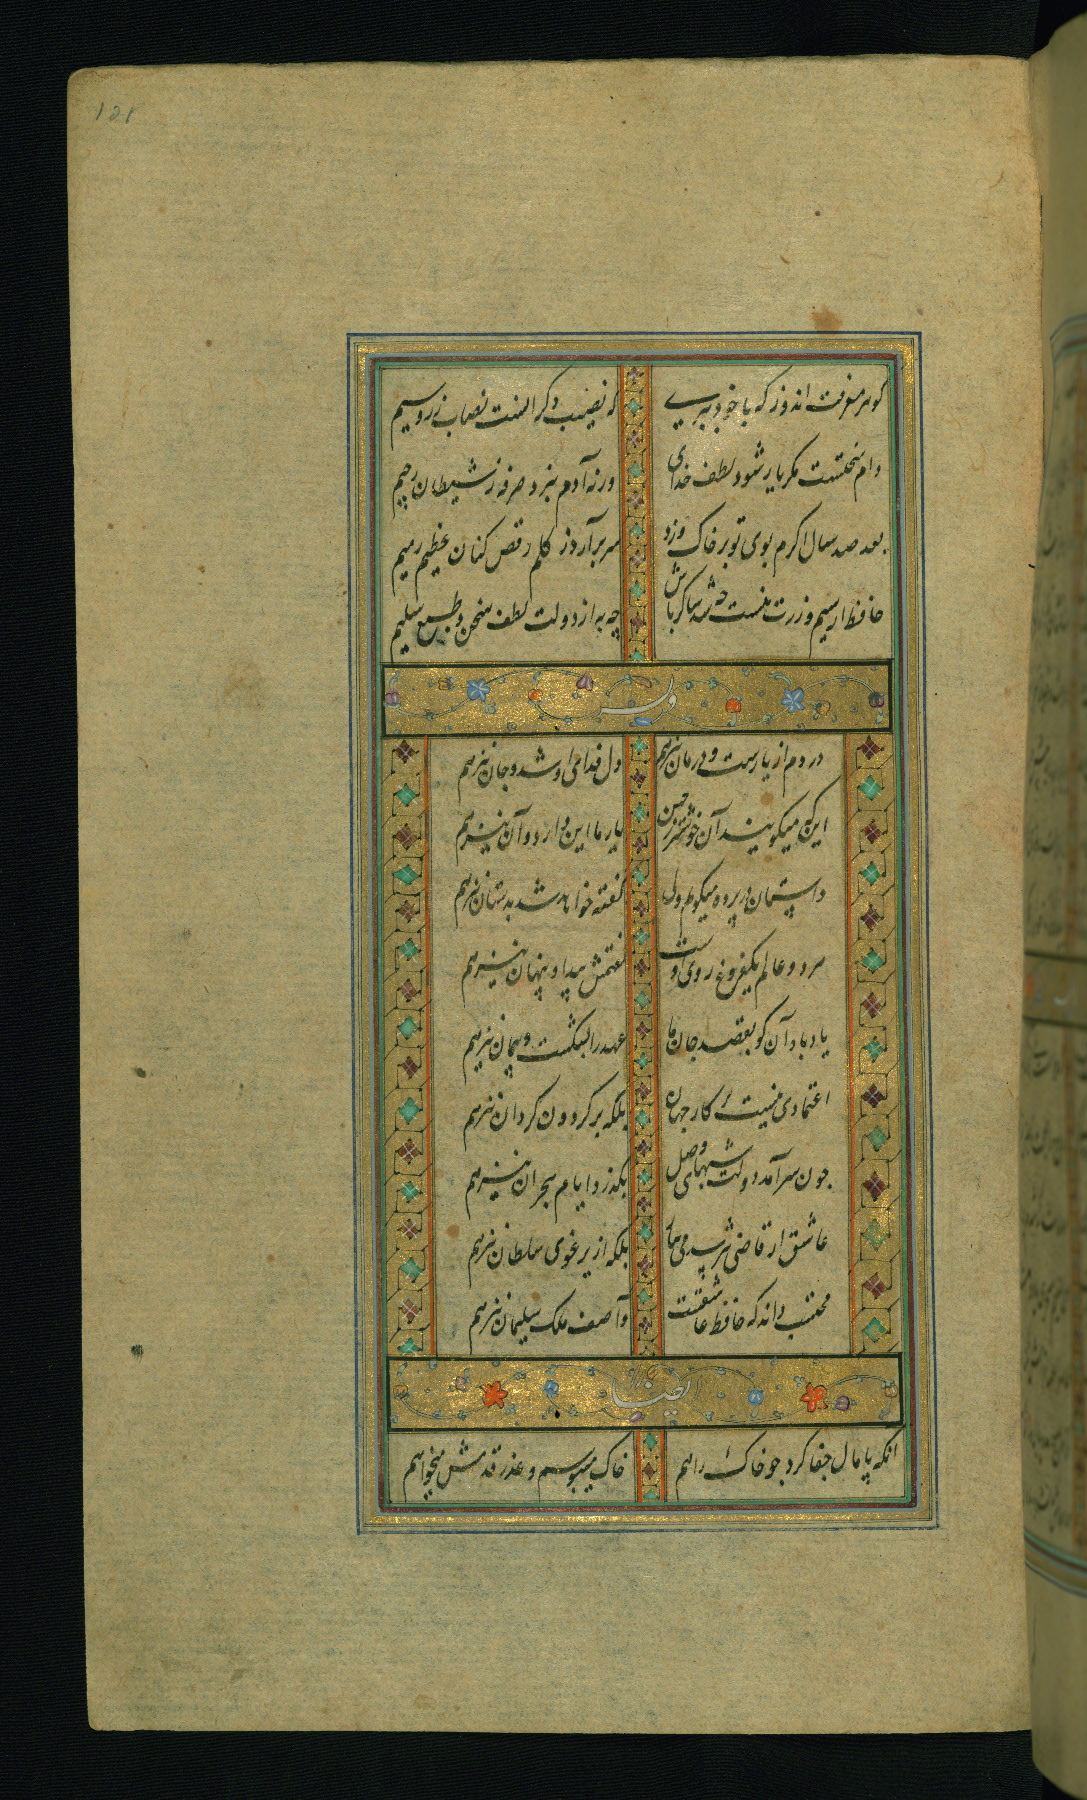 گوهر معرفت اندوز که با خود ببری
که نصیب دگرانست نصاب زر و سیم
دام سختست مگر یار شود لطف خدای
ورنه آدم نبرد صرفه ز شیطان رجیم
بعد صد سال اگرم بوی تو بر خاک وزد
سر برآرد ز گلم رقص کنان عظم رمیم
حافظ ار سیم و زرت نیست چه شد شاکر باش
چه به از دولت لطف سخن و طبع سلیم
وله
دردم از یارست و درمان نیز هم
دل فدای او شد و جان نیز هم
این که میگویند آن خوشتر ز حسن
یار ما این دارد و آن نیز هم
داستان در پرده میگویم ولی
گفته خواهد شد بدستان نیز هم
هر دو عالم یکفروغ روی اوست
گفتمش پیدا و پنهان نیز هم
یاد باد آن کو بقصد جان ما
عهد را بشکست و پیمان نیز هم
اعتمادی نیست بر کار جهان
بلکه بر گردون گردان نیز هم
چون سرآمد دولت شبهای وصل
بگذرد ایام هجران نیز هم
عاشق از قاضی نترسد می بیار
بلکه از یرغوی سلطان نیز هم
محتسب داند که حافظ عاشقست
وآصف ملک سلیمان نیز هم
ایضا
انکه پامال جفا کرد چو خاک راهم
خاک میبوسم و عذر قدمش میخواهم